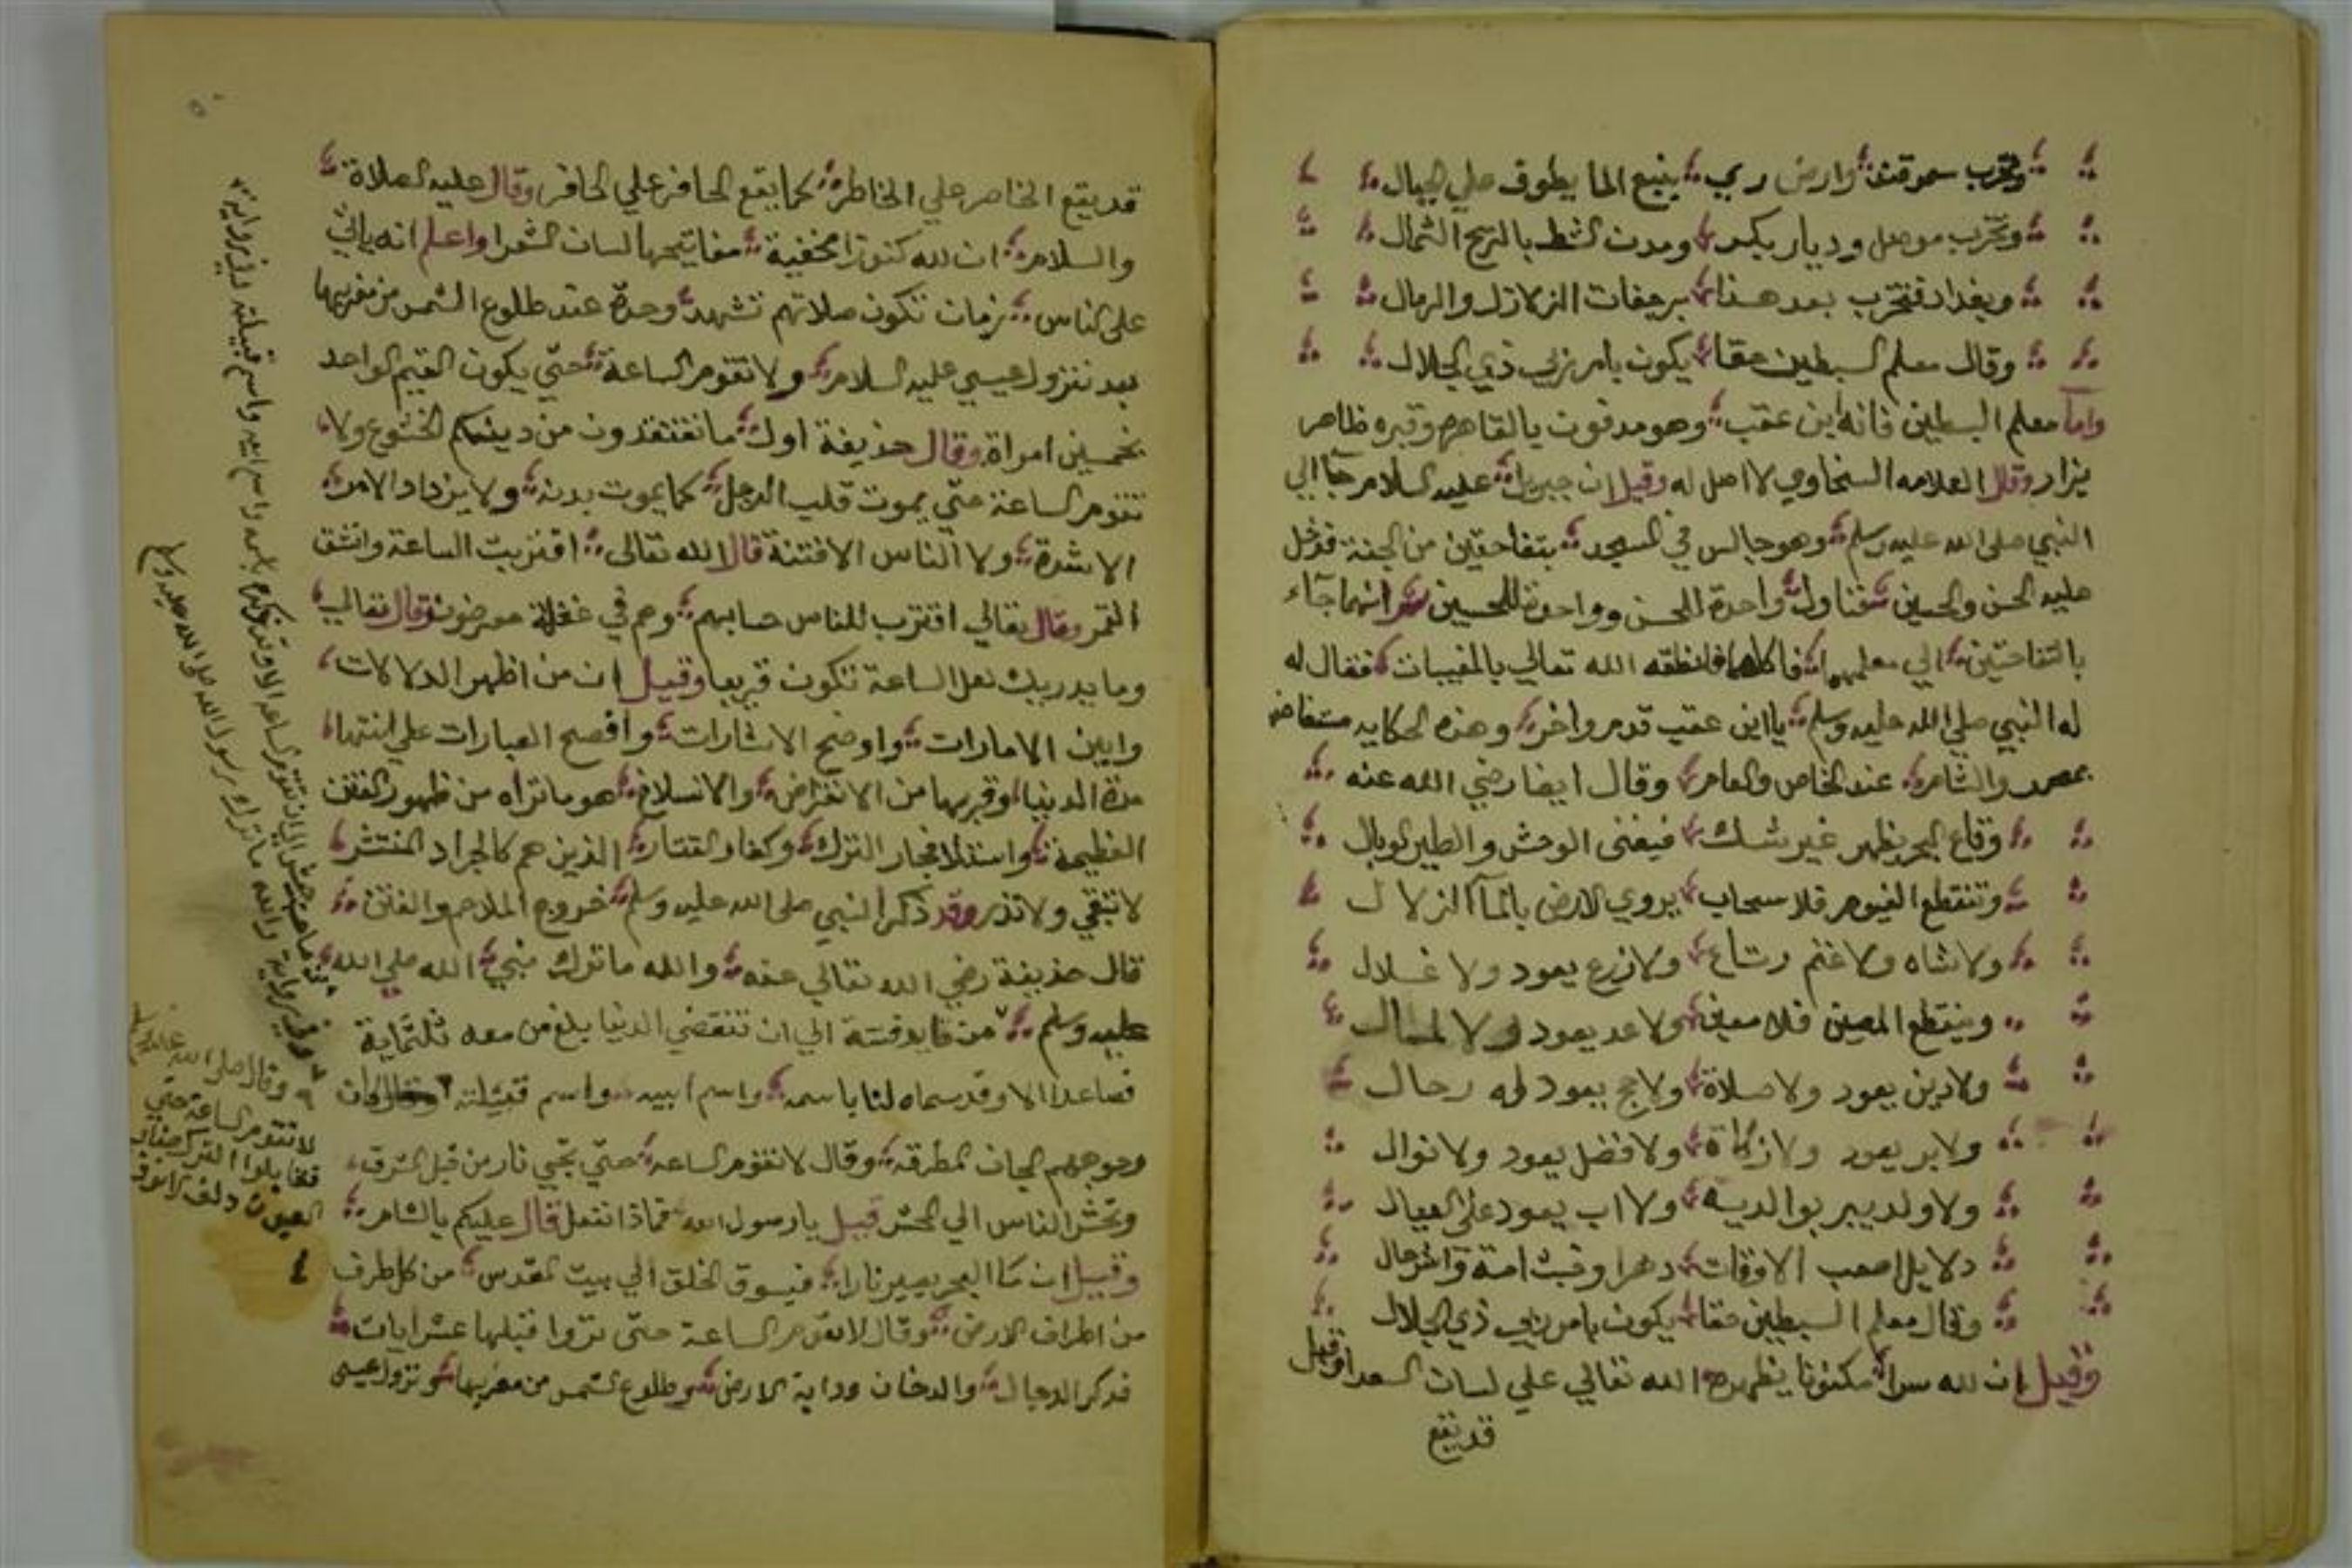 وتخرب سمرقند وارض ري ينبع الما يطوف علي الجبال
وتخرب موصل وديار بكر ومدن الشط بالريح الشمال
وبغداد فتخرب بعد هذا برجفات الزلازل والرمال
وقال معلم السبطين حقا يكون بامر ربي ذي الجلال
واما معلم السبطين فانه ابن عقب وهو مدفون بالقاهره وقبره ظاهر
يزار وقال العلامه السخاوي لا اصل له وقيل ان جبريل عليه السلام جاالي
النبي صلى الله عليه وسلم وهو جالس في المسجد بتفاحتين من الجنة فدخل
عليه الحسن والحسين فناول واحدة للحسن وواحدة للحسين ثم انهما جآء
بالتفاحتين الي معلمهما فاكلهما فانطقه الله تعالي بالمغيبات فقال له
له النبي صلي الله عليه وسلم يا ابن عقب قدم واخر وهذه الحكايه مستفاضه
بمصر والشام عند الخاص والعام وقال ايضا رضي الله عنه
وقاع البحر يظهر غير شك فيفنى الوحش والطير الوبال
وتنقطع الغيوم فلا سحاب يروي الارض بالمآ الزلال
ولا شاه ولا غنم رتاع ولا زرع يعود ولا غلال
وينقطع المعين فلا معين ولا عد يعود ولا
ولا دين يعود ولا صلاة ولا حج يعود له رحال
ولا بر يعود ولا زكاة ولا فضل يعود ولا نوال
ولا ولد يبر بوالديه ولا اب يعود على العيال
دلايل اصعب الاوقات دهرا وقت امة واخر حال
وقال معلم السبطين حقا يكون بامر ربي ذي الجلال
وقيل ان لله سرا مكنونا يظهره الله تعالي علي لسان الشعرا وقيل
قد يقع
قد يقع الخاصر علي الخاطر كما يقع الحافر علي الحافر وقال عليه الصلاة
والسلام ان لله كنوزا مخفية مفاتيحها لسان الشعرا واعلم انه ياتي
على الناس زمان تكون صلاتهم تشهد وحدة عند طلوع الشمس من مغربها
بعد نزول عيسي عليه السلام ولا تقوم الساعة حتي يكون القيم الواحد
بخمسين امراة وقال حذيفة اول ما تفتقدون من دينكم الخشوع ولا
تقوم الساعة حتي يموت قلب الرجل كما يموت بدنه ولا يزداد الامر
الا شدة ولا الناس الا فتنة قال الله تعالى اقتربت الساعة وانشق
القمر وقال تعالي اقترب للناس حسابهم وهم في غفلة معرضون وقال تعالي
وما يدريك لعل الساعة تكون قريبا وقيل ان من اظهر الدلالات
وابين الامارات واوضح الاشارات وافصح العبارات علي انتها
مدة الدنيا وقربها من الانقراض والانسلاخ هو ما تراه من ظهور الفتن
العظيمة واستلا فجار الترك وكفار التتار الذين هم كالجراد المنتشر
لا تبقي ولا تذر وقد ذكر النبي صلى الله عليه وسلم خروج الملاحم والفتن
قال حذيفة رضي الله تعالي عنه والله ما ترك نبي الله صلي الله
عليه وسلم من قايد فتنة الي ان تنقضي الدنيا بلغ من معه ثلثماية
فصاعدا الا وقد سماه لنا باسمه واسم ابيه واسم قبيلته كان
وجوههم المجان المطرقه وقال لا تقوم الساعه حتي تجي نار من قبل الشرق
وتحشر الناس الي المحشر قيل يا رسول الله فماذا نفعل قال عليكم بالشام
وقيل ان ما البحر يصير نارا فيسوق الخلق الي بيت المقدس من كل طرف
من اطراف الارض وقال لا تقوم الساعة حتى تروا قبلها عشر ايات
فذكر الدجال والدخان ودابة الارض وطلوع الشمس من مغربها ونزول عيسى
وفي رواية والله ما ترك رسول الله صلى الله عليه وسلم
وقال صلى الله عليه وسلم
لا تقوم الساعة حتي
تقابلوا الترك صغار
العيون دلف الانوف